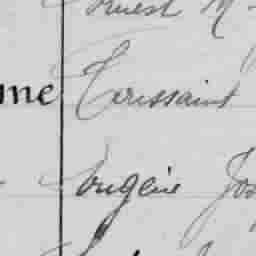 Ernest M
me Toussaint
Eugène Jos